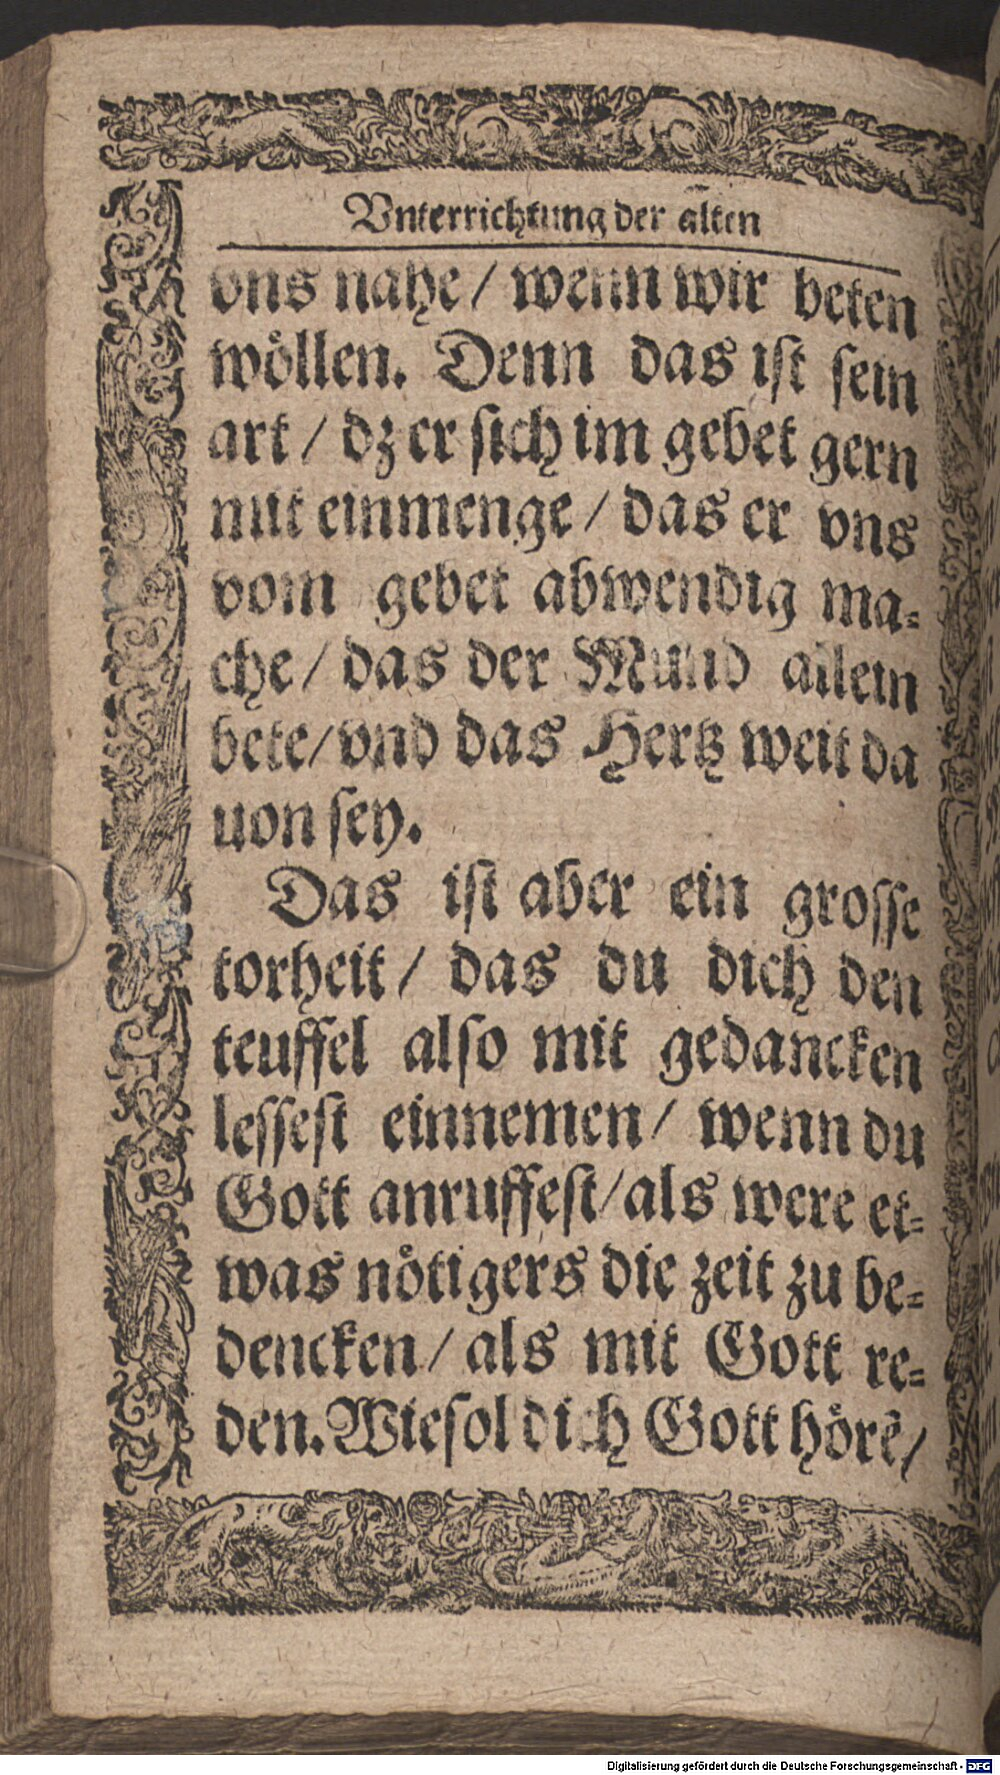 Vnterrichtung der alten
vns nahe / wenn wir beten
wöllen. Denn das ist sein
art / dz er sich im gebet gern
mit einmenge / das er vns
vom gebet abwendig ma⸗
che / das der Mund allein
bete / vnd das Hertz weit da
uon sey.
Das ist aber ein grosse
torheit / das du dich den
teuffel also mit gedancken
lessest einnemen / wenn du
Gott anruffest / als were et⸗
was nötigers die zeit zu be⸗
dencken / als mit Gott re⸗
den. Wie sol dich Gott hörē /
Digitalisierung gefördert durch die Deutsche Forschungsgemeinschaft - DFG